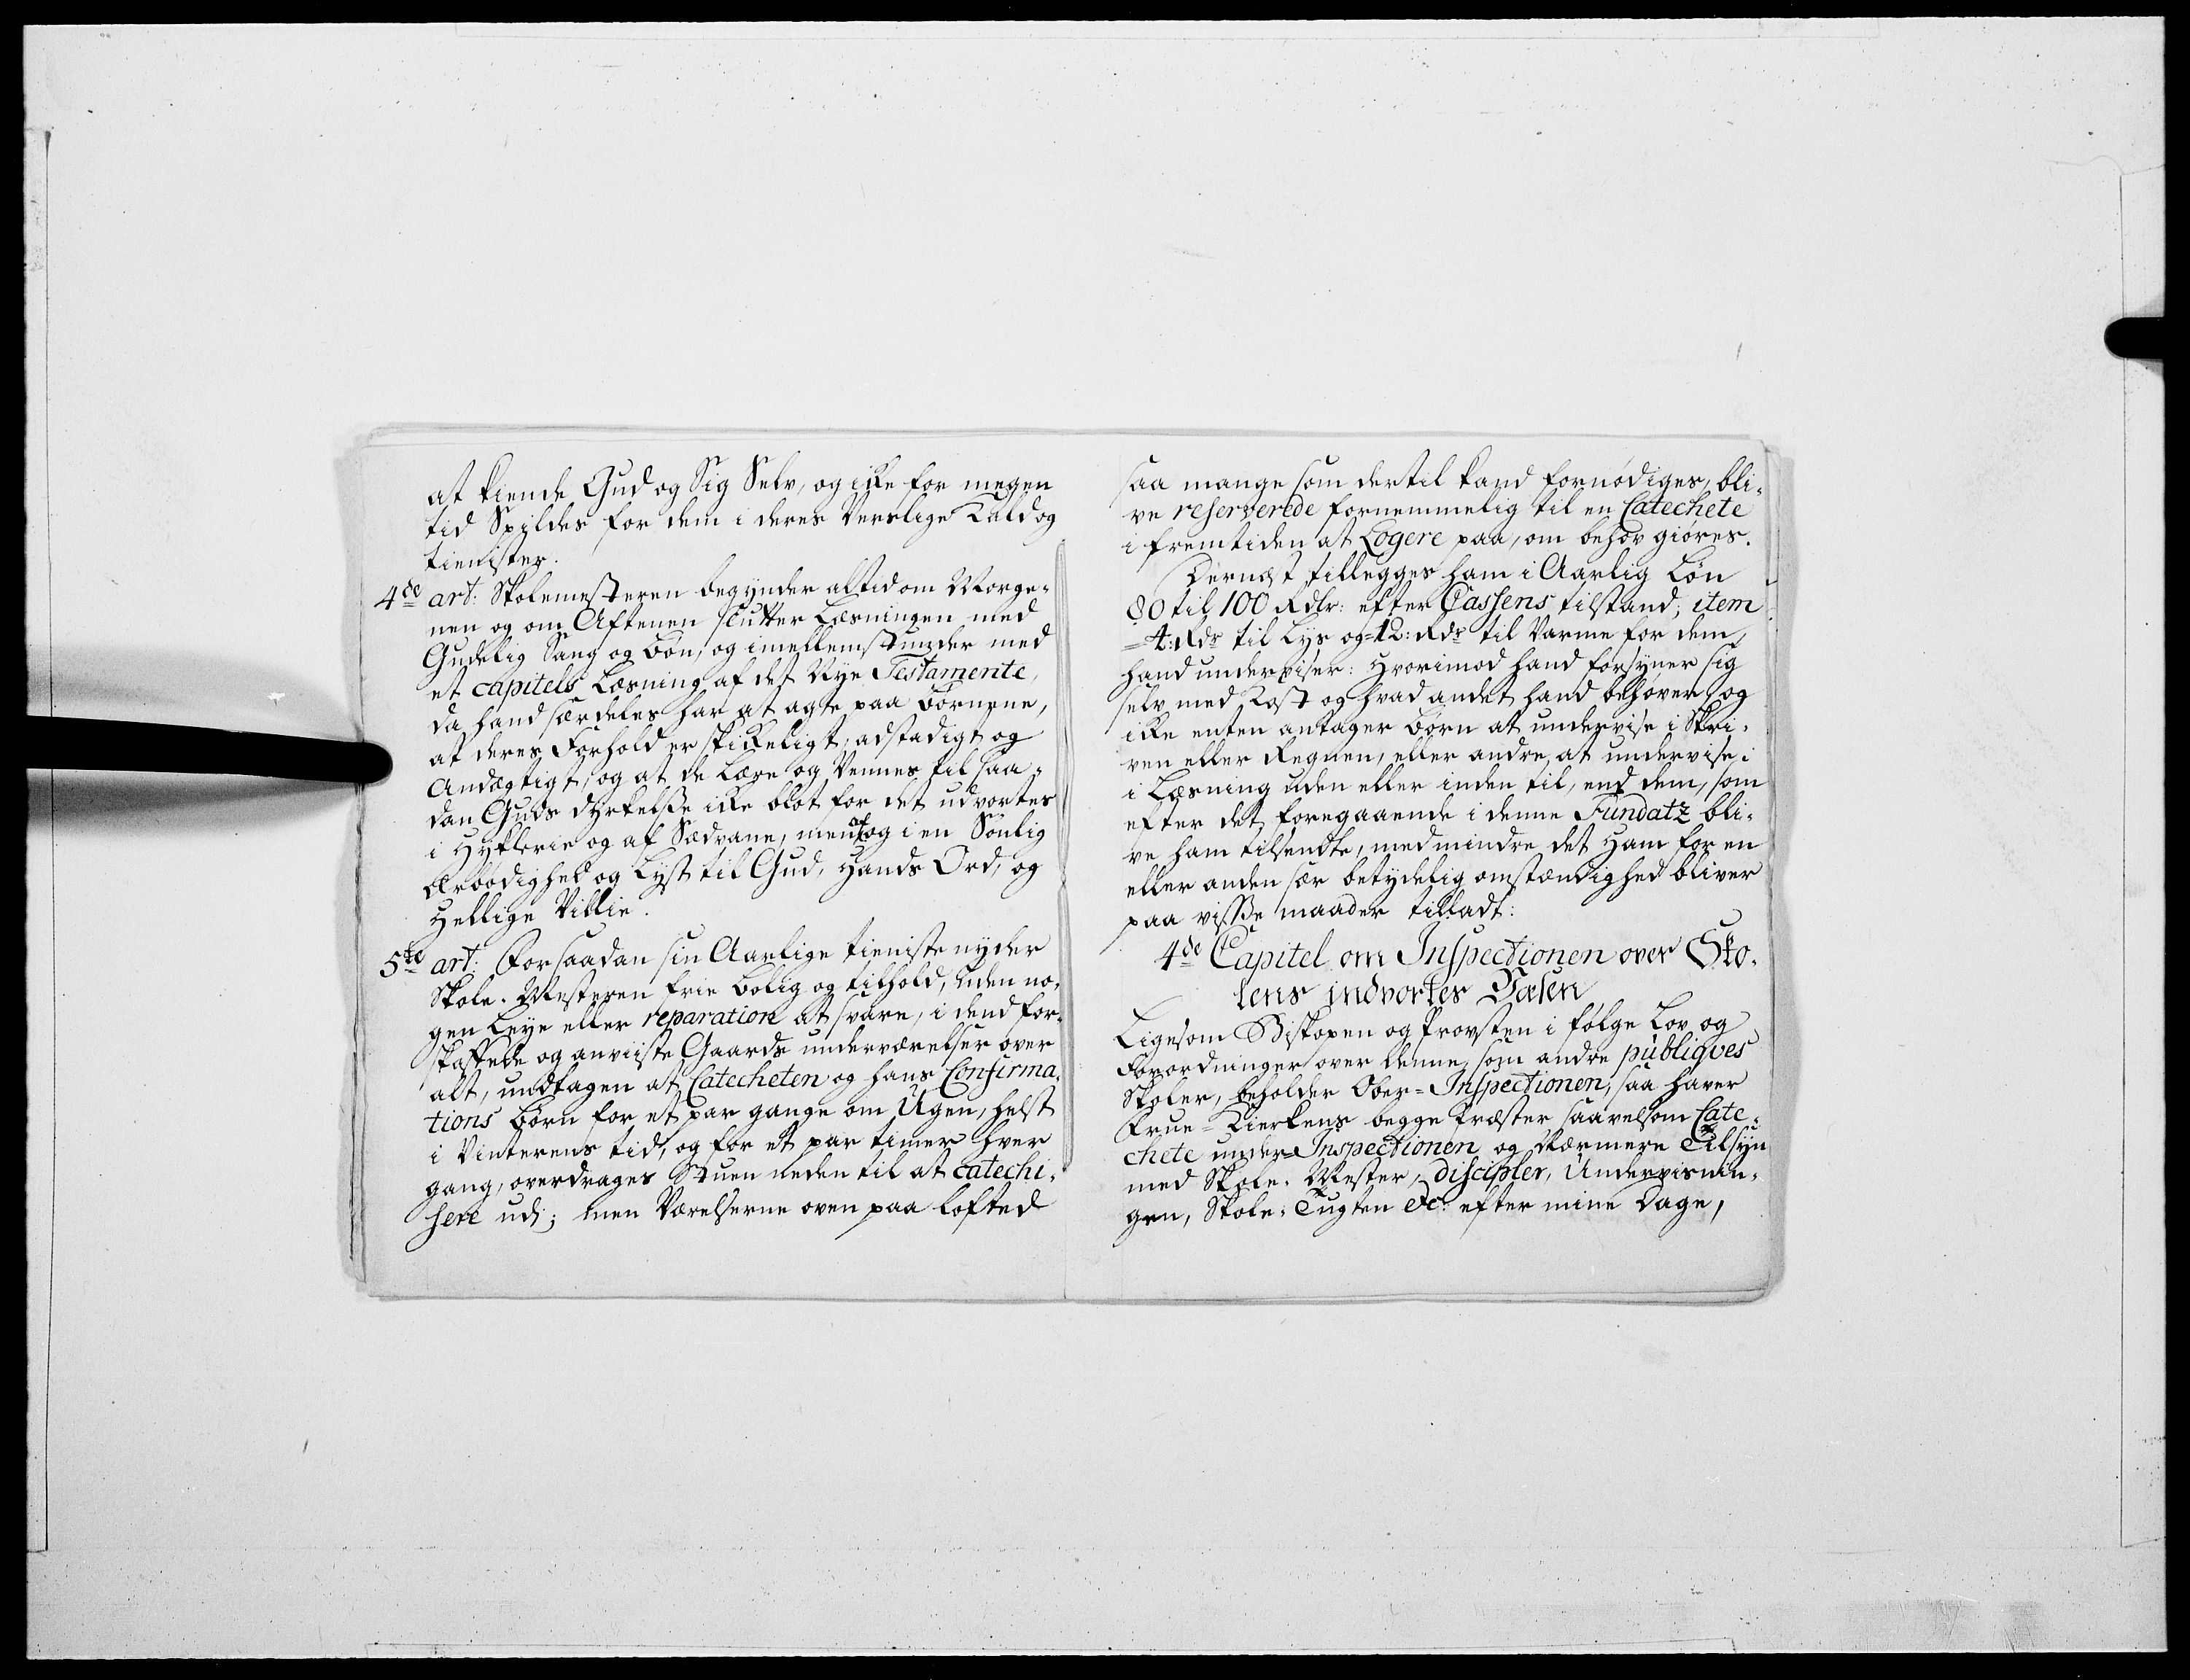 at kiende Gud og Sig Selv, og ikke for megen
tid Spildes for dem i deres Verslige Kald og
tienister.
4de art: Skolemesteren begynder altid om Morge-
nen og om Aftenen slutter Læsningen med
Gudelig Sang og bøn, og imellemstunder med
et capitels Læsning af det Nye Testamente,
da hand særdeles har at agte paa børnene,
at deres Forhold er skikkeligt, adstadigt og
Andægtigt, og at de lære og Vennes til saa-
dan Guds dyrkelsse ikke blot for det udvortes
i Hyklerie og af Sædvane, men at og i en Sønlig
ærbødighed og Lyst til Gud, Hands Ord, og
Hellige Villie.
5te art: For saadan sin Aarlige tieniste nyder
Skole-Mesteren frie bolig og tilhold, uden no-
gen Leye eller reparation at svare, i dend for-
skaffede og anviiste Gaards underværelser over
alt, undtagen at Catecheten og hans Confirma-
tions børn for et par gange om Ugen, helst
i Vinterens tid, og for et par timer hver
gang, overdrages Stuen neden til at catechi-
sere udi; men Værelserne oven paa lofted
saa mange som dertil kand fornødiges, bli-
ve reserverede fornemmelig til en Catechete
i fremtiden at Logere paa, om behøv giøres.
Dernæst tillegges ham i Aarlig Løn
80 til 100 Rdlr: efter Cassens tilstand; item
=4: Rdr til Lys og =12: Rdr til Varme for dem,
hand underviser: Hvorimod hand forsyner sig
selv med Kost og hvad andet hand behøver, og
ikke enten antager børn at undervise i Skri-
ven eller Regnen, eller andre, at undervise i
i Læsning uden eller inden til, end dem, som
efter det foregaaende i denne Fundatz bli-
ve ham tilsendte, med mindre det Ham for en
eller anden sær betydelig omstændighed bliver
paa visse maader tilladt:
4de Capitel om Inspectionen over Sko-
lens indvortes Væsen
Ligesom Biskopen og Provsten i følge Lov og
Forordninger over denne, som andre publiqves
Skoler, beholder Ober-Inspectionen, saa haver
Frue-Kierkens begge Præster saavelsom Cate-
chete under-Inspectionen og Nærmere Tilsyn
med Skole-Mester, Discipler, Undervisnin-
gen, Skole-Tugten &c: efter mine Dage,